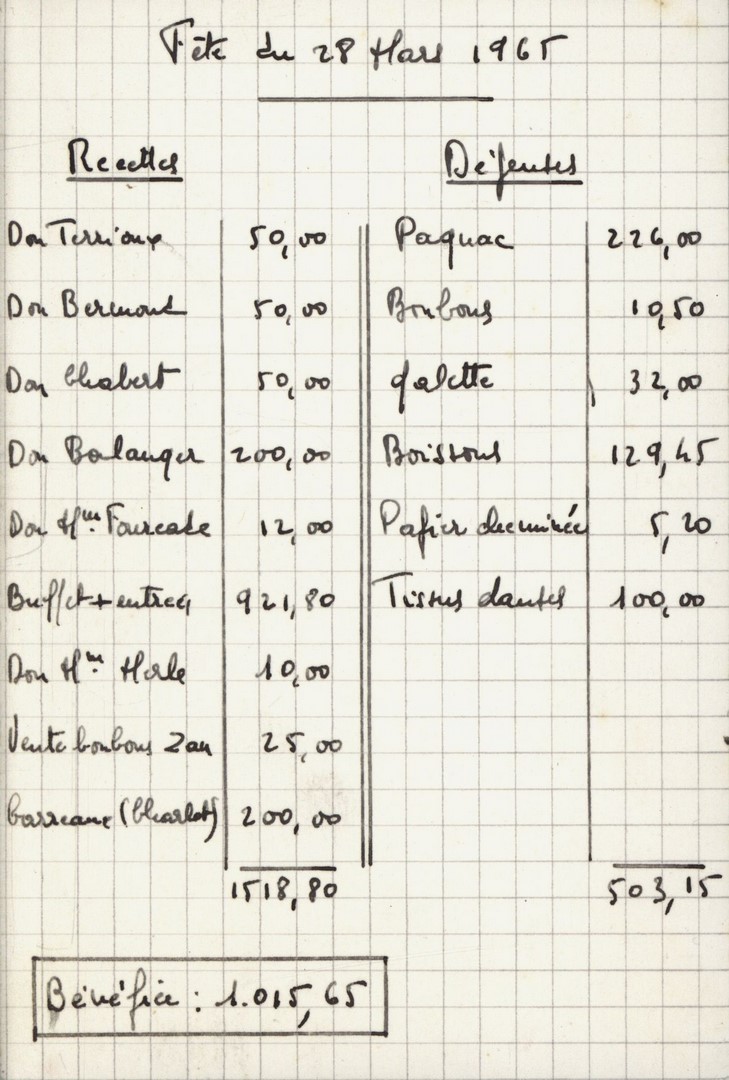 Fête du 28 Mars 1965
Recettes Dépenses
Don Terrioux 50,00 Paquac 226,00
Don Bermont 50,00 Bonbons 10,50
Don Chabert 50,00 galette 32,00
Don Boulanger 200,00 Boissons 129,45
Don Mme Fourcade 12,00 Papier cheminée 5,20
Buffet + entrées 921,80 Tissus danses 100,00
Don Mme 10,00
Vente bonbons Zan 25,00
Carreaux (Charlot) 200,00
1518,80 503,15
Bénéfice : 1.015,65